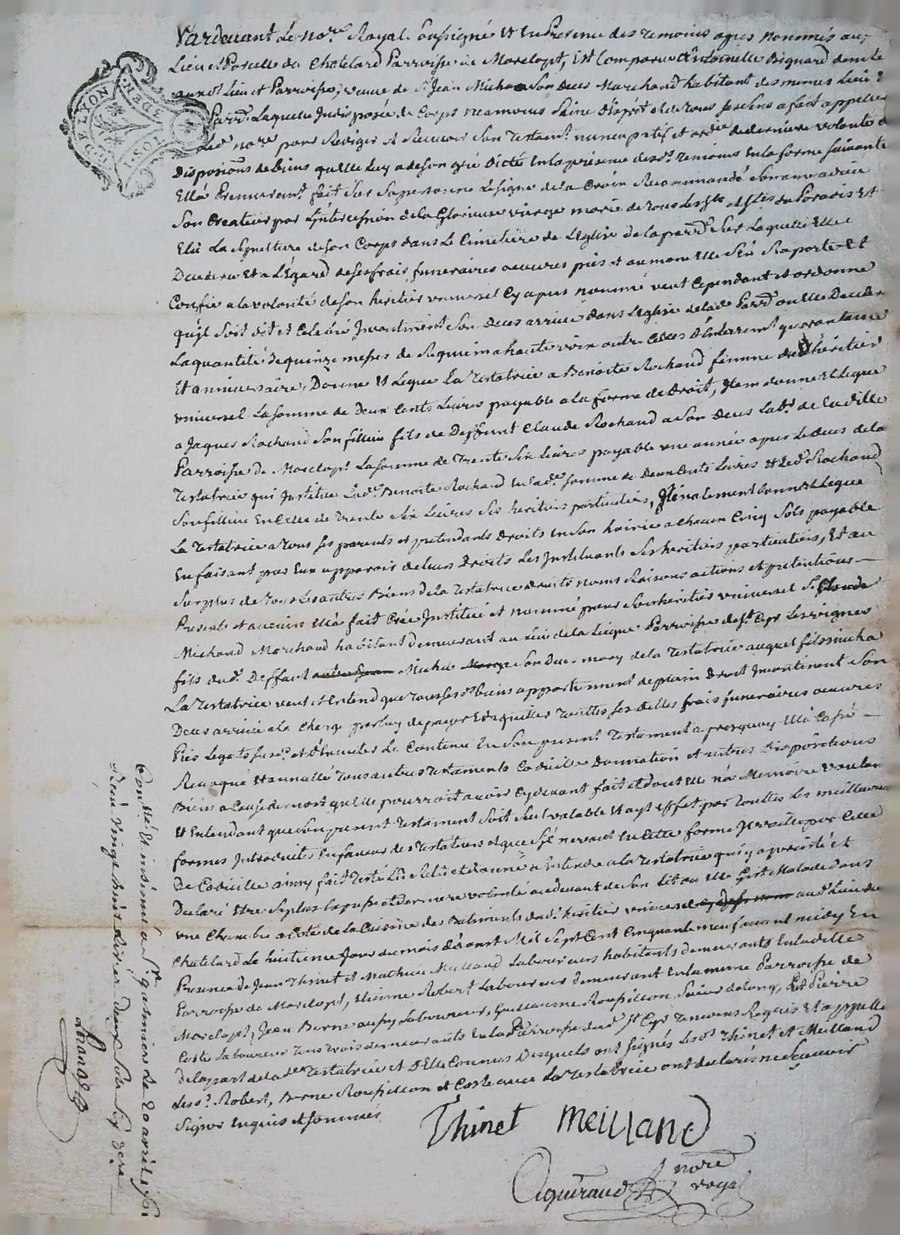 G. DE LYON
DEN.
Pardevant Le no.re Royal Soussigné et en Presence des temoins apres nommés au
Lieu et Parcelle du Chatelard Parroisse de Marclopt, est comparu Antoinette Bignard demte
aud.t Lieu et Parroisse, veuve de S.r Jean Michon Son Marchand habitant des memes Lieu &
Parr.e Laquelle Indisposée de corps neamoins Saine d'esprit et de tous ses sens a fait appeller
Led.t no.re pour Rediger et Recevoir Son Testam.t nuncupatif et ord.ce de derniere volonté &
dispositions de Biens quelle luy a de son gré Dicté en la presence desd. temoins en la forme suivante
Elle Premierem.t fait sur sa personne Le signe de la Croix Recommandé Son ame a dieu
Son Createur par L'intercession de la Glorieuse vierge marie de tous Les Sts et Stes du Paradis Et
Elu La Sepulture de son Corps dans Le Cimetiere de L'Eglise de la parr.e Sur Laquelle Elle
Decedera Et a L'Egard de ses frais funeraires oeuvres pies et aumone Elle S'en Raporte Et
Confie a la volonté de son heritier universel cy apres nommé veut Cependant et ordonne
qu'il soit dit et Celebré Incontinent Son deces arrivé dans L'eglise de la de Parr.e ou Elle Decedera
La quantité de quinze messes de Requiem a haute voix outre Celles d'Enterrem.t quarantaine
Et anniversaire, Donne Et Legue La Testatrice a Benoite Rochand femme de heritier
universel La somme de Deux Cents Livres payable a la forme de Droit, Item donne et Legue
a Jaques Rochand Son fillieu fils de Deffunt Claude Rochand a Son deces Lab.r de Ladille
Parroisse de Marclopt La somme de Trente Six Livres payable une année apres Le deces de la
Testatrice qui Institue Lad.e Benoite Rochand en lad.e somme de Deux Cents Livres et Led.t Rochand
Son fillieu en Celle de Trente Six Livres Ses heritiers particuliers, Finalement donne et Legue
La Testatrice a tous ses parents et pretendants Droits en Son hoirie a chacun Cinq Sols payable
En faisant par Eux apparoir de leurs Droits Les Instituants Ses heritiers particuliers, Et au
Surplus de tous Les autres Biens de la Testatrice droits noms Raisons actions et pretentions
Presents et avenir Elle a fait Créé Institué et nommé pour Son heritier universel S.r Claude
Michaud Marchand habitant demeurant au lieu de la Parroisse de S.t Cyr Les vignes
fils dud.t Deffunt Michon Son mary de la Testatrice auquel fils
La Testatrice veut et Entend que tous sesd. biens appartiennent de plein Droit Incontinent Son
Deces arrivé a la Charge par luy de payer Et acquitter toutes ses dettes frais funeraires oeuvres
Pies Legats susd.s et d'Executer Le Contenu en Son present Testament a presquoy Elle a Cassé
Revoqué Et annullé tous autres Testaments Codicille donnation et autres Dispositions
Biens a Cause de mort qu'elle pourroit avoir Cy devant fait Et dont Elle n'a Memoire voulant
Et Entendant que Son present Testament Soit Seul valable Et ayt effet par toutes Les meilleures
formes Introduites En faveur des Testateurs et que s'il ne vaut En Cette forme par Celle
De Codicille ainsy fait Testé Lu Relu et donné a Entendre a la Testatrice qui y a persisté et
Declaré Etre Sa plus expresse Et derniere volonté audevant de Son Lit ou Elle Gist Malade dans
une Chambre a Coté de la Cuisine des Batiments dud. heritier universel aud.t Lieu du
Chatelard Le huitieme Jour du mois d'aoust Mil Sept Cent Cinquante neuf avant midy En
Presence de Jean Thinet et Mathieu Meilland Laboureurs habitants demeurants en lad.e
Parroisse de Marclopt, Etienne Robert Laboureur demeurant en la meme Parroisse de
Marclopt, Jean Berne aussy Laboureur, Guillaume Roussillon Scieur de Long, Et Pierre
Coste Laboureur Tous trois demeurants En la Parroisse dud. S.t Cyr Temoins Requis Et appellés
de la part de la d.e Testatrice et d'Elle Connus Desquels ont Signés Lesd. Thinet Et Meilland
Lesd. Robert, Berne Roussillon et Coste avec La Testatrice ont declaré ne Scavoir
Signer Enquis Et Sommés
Thinet Meilland
nore
royal
Conllé Et insinué a St galmier Le 20 avril
Reçu vingt huit Livres Deux Sols Six Den.